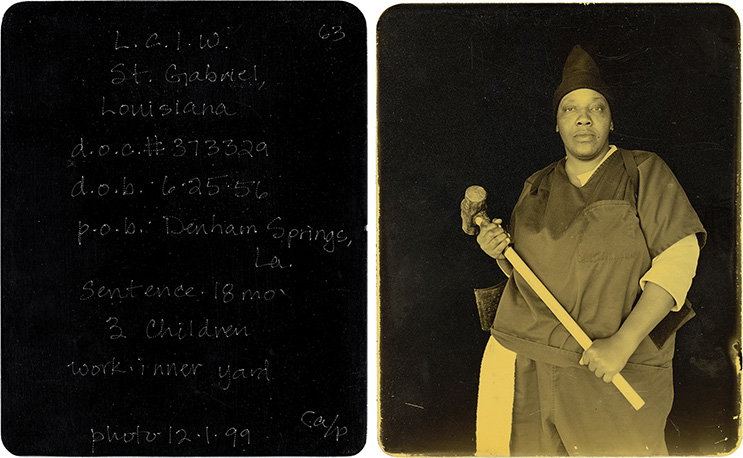 L.C.I.W. 63
St. Gabriel,
Louisiana
d.o.c.# 373329
d.o.b. 6.25.56
p.o.b. Denham Springs,
La.
Sentence. 18 mo.
3 Children
work. inner yard
photo 12.1.99